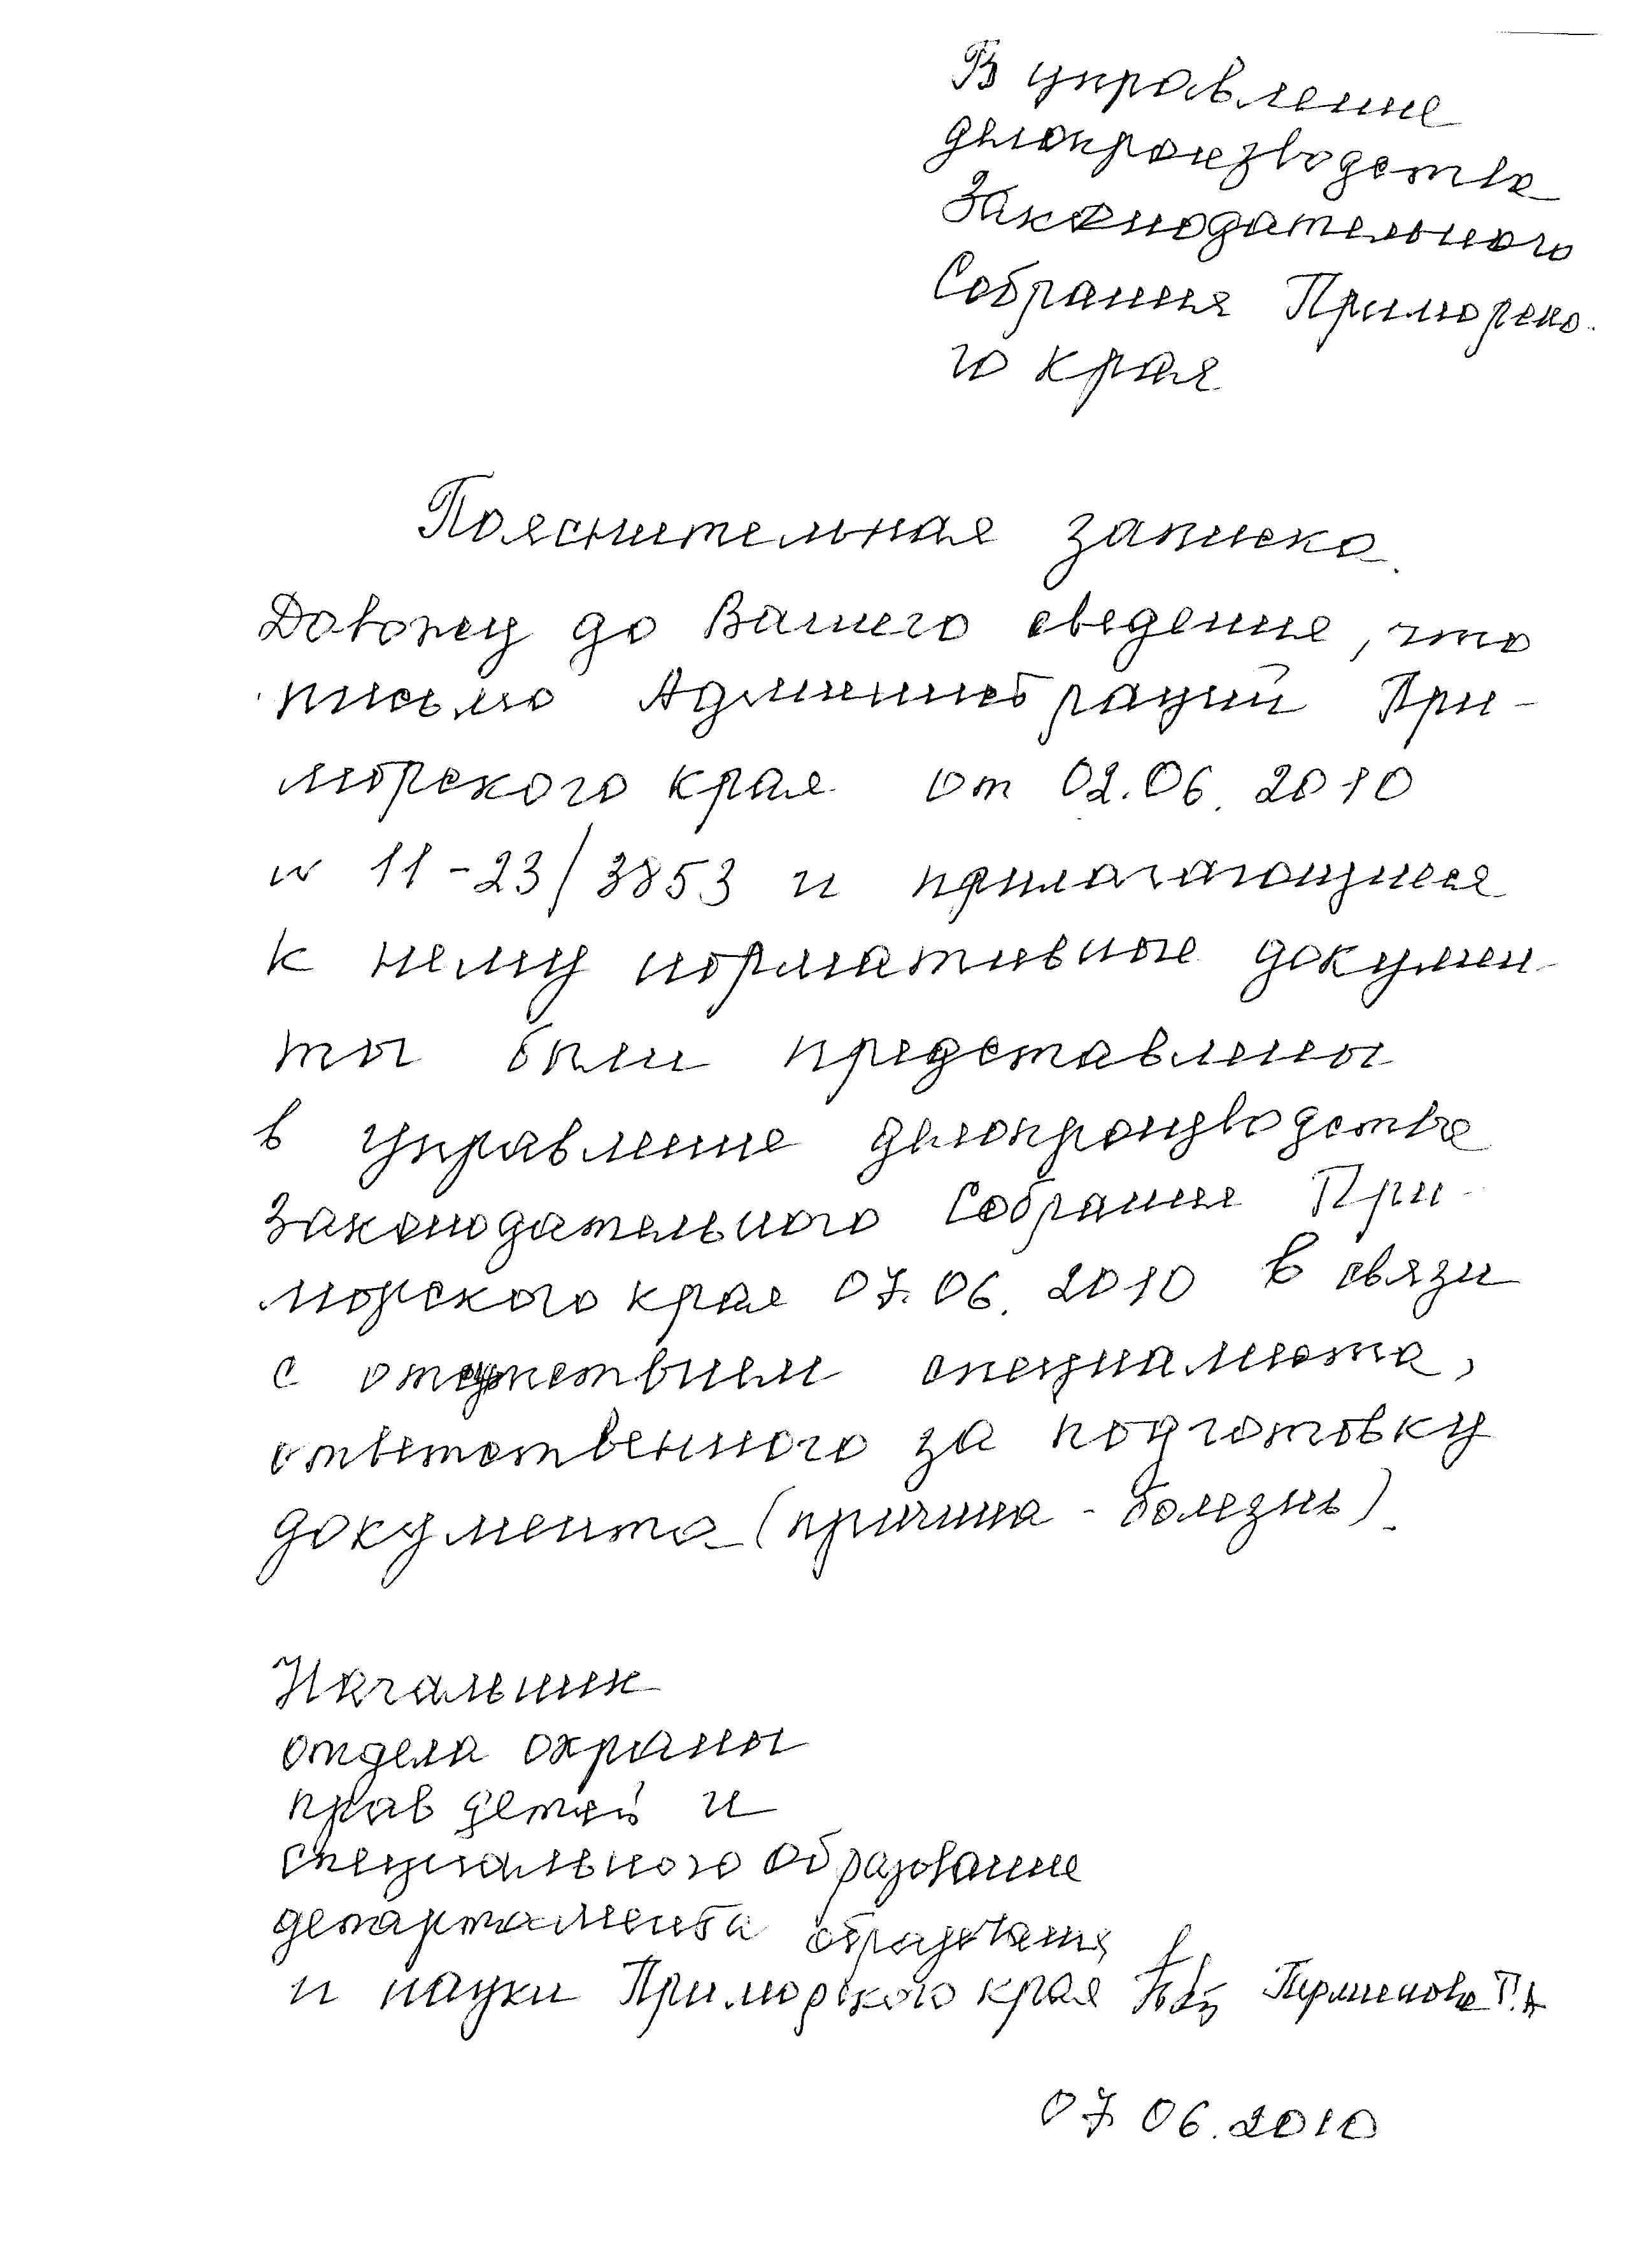 В управление
делопроизводства
Законодательного
Собрания Приморско-
го края
Пояснительная записка.
Довожу до Вашего сведения, что
письмо Администраций При-
морского края от 02.06.2010
№ 11-23/3853 и прилагающиеся
к нему нормативные докумен-
ты были представлены
в управление делопроизводства
Законодательного Собрания При-
морского края 07.06.2010 в связи
с отсутствием специалиста,
ответственного за подготовку
документа (причина - болезнь).
Начальник
отдела охраны
прав детей и
специального образования
департамента образования
и науки Приморского края
07.06.2010